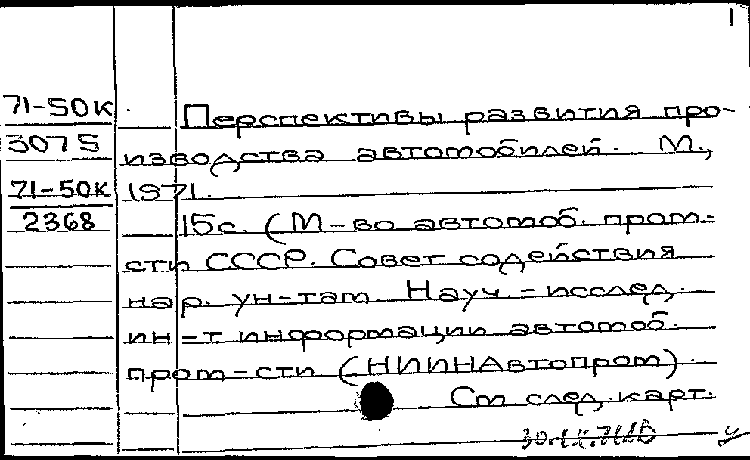 1
71-50к
3075
71-50к
2368
Перспективы развития про-
изводства автомобилей. М.,
1971.
15с. (М-во автомоб. пром-
сти СССР. Совет содействия
нар. ун-там. Науч.-исслед.
ин-т информации автомоб.
пром-сти (НИИНАвтопром)
См след. карт.